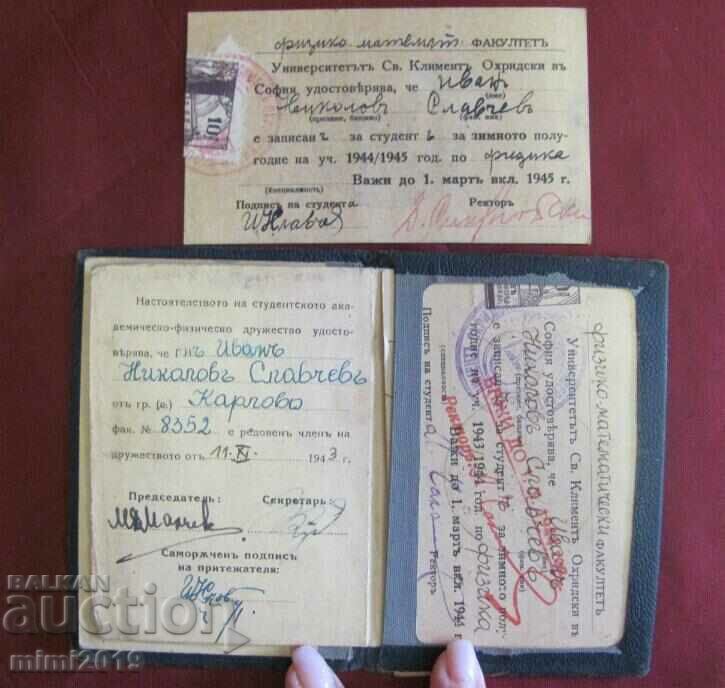 физико математ. ФАКУЛТЕТЪ
Университетътъ Св. Климентъ Охридски въ
София удостовѣрява, че Иванъ
(име)
Николовъ Славчевъ
(презиме, бащино) (фам. име)
е записанъ за студентъ за зимното полу-
годие на уч. 1944/1945 год. по физика
Важи до 1. мартъ вкл. 1945 г.
(специалность)
Подпис на студента
Ректоръ
10
Настоятелството на студентското ака-
демическо-физическо дружество удосто-
вѣрява, че Г нъ Иванъ
Николовъ Славчевъ
отъ гр. (с.) Карлово
фак. № 8352 е редовенъ членъ на
дружеството отъ 11. XI. 1943 г.
Председатель: Секретарь:
Саморѫченъ подпись
на притежателя:
физико-математически ФАКУЛТЕТЪ
Университетътъ Св. Климентъ Охридски въ
София удостовѣрява, че Иванъ
Николовъ Славчевъ
е записанъ за студентъ за зимното полу-
годие на уч. 1943/1944 год. по физика
Важи до 1. мартъ вкл. 1944 г.
(специалность)
Подпись на студента
Ректоръ
ВАЖИ ДО
Ректоръ:
BALKAN
auction
mimi2019